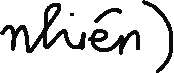 nhiên)